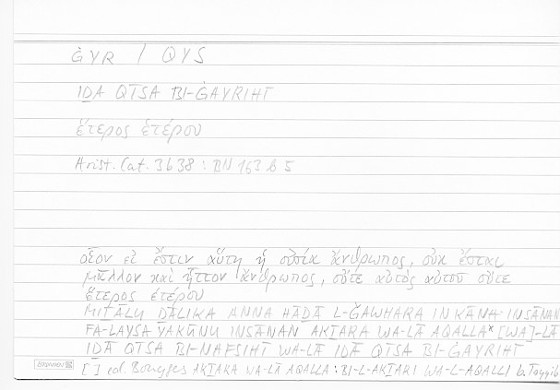 ĠYR / QYS
IḎĀ QĪSA BI-ĠAYRIHĪ
ἕτερος ἑτέρου
Arist. Cat. 3b38 : BN 163 b 5
οἷον εἰ ἔστιν αὕτη ἡ οὐσία ἄνθρωπος, οὐκ ἔσται
μᾶλλον καὶ ἧττον ἄνθρωπος, οὔτε αὐτὸς αὑτοῦ οὔτε
ἕτερος ἑτέρου
MIṮĀLU ḎĀLIKA ANNA HĀḎĀ L-ĞAWHARA IN KĀNA INSĀNAN
FA-LAYSA YAKŪNU INSĀNAN AKṮARA WA-LĀ AQALLA* [WA]-LĀ
IḎĀ QĪSA BI-NAFSIHĪ WA-LĀ IḎĀ QĪSA BI-ĠAYRIHĪ
[*] ed. Bouyges AKṮARA WA-LĀ AQALLA : BI-L-AKṮARI WA-L-AQALLI